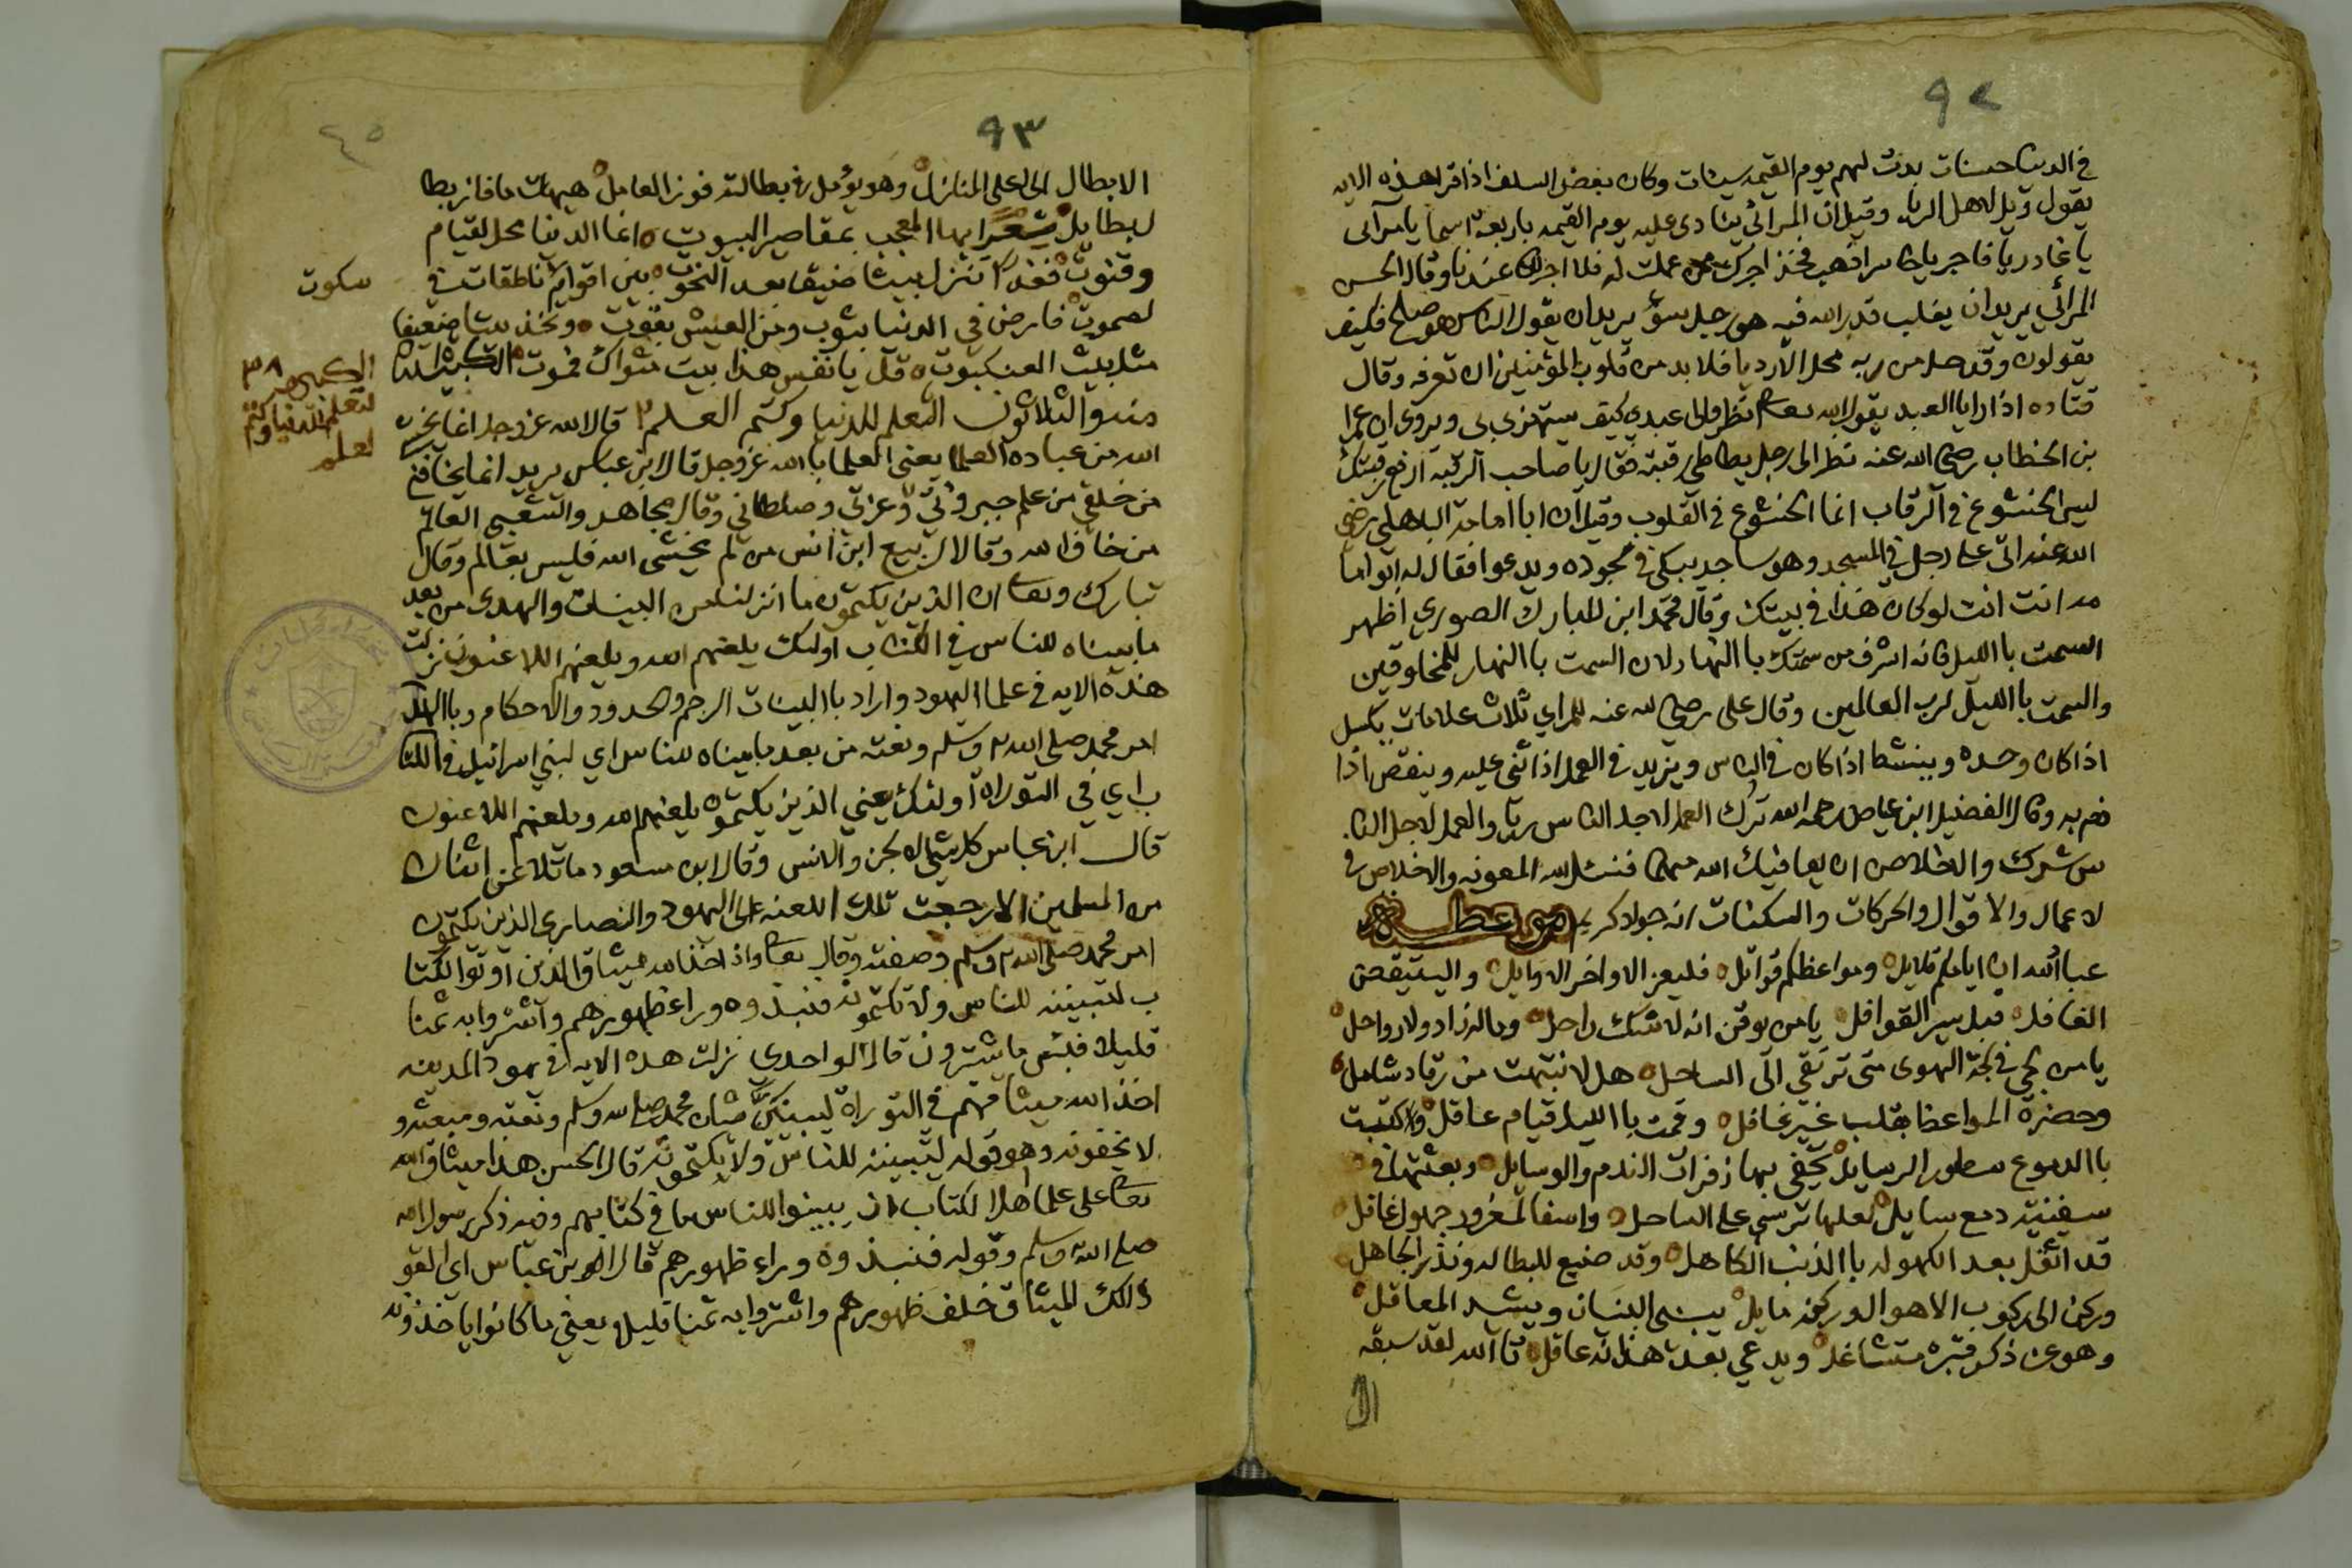 ٩٢
في الدنيا حسنات بدت لهم يوم القيمه سيئات وكان بعض السلف اذا قرا هذه الايه
يقول ويل لاهل الريا وقيل ان المرائي ينادى عليه يوم القيمه باربعة اسما يا مرآئى
يا غادر يا فاجر يا خاسر اذهب فخذ اجرك ممن عملت له فلا اجر لك عندنا وقال الحسن
المرائي يريد ان يغلب قدر الله فيه هو رجل سوء يريد ان يقول الناس هو صالح فكيف
يقولون وقد حل من ربه محل الارديا فلا بد من قلوب المؤمنين ان تعرفه وقال
قتاده اذا رايا العبد يقول الله تعالى انظروا الى عبدي كيف يستهزي بى ويروى ان عمر
بن الخطاب رضي الله عنه نظر الى رجل يطاطي رقبته فقال يا صاحب الرقبه ارفع رقبتك
ليس الخشوع في الرقاب انما الخشوع في القلوب وقيل ان ابا امامة الباهلي رضي
الله عنه اتى على رجل في المسجد وهو ساجد يبكي في سجوده ويدعوا فقال له ابو اما
مه انت انت لو كان هذا في بيتك وقال محمد ابن المبارك الصوري اظهر
السمت باالليل فانه اشرف من سمتك باالنهار لان السمت باالنهار للمخلوقين
والسمت باالليل لرب العالمين وقال على رضي الله عنه للمراي ثلاث علامات يكسل
اذا كان وحده وينشط اذا كان في الناس ويزيد في العمل اذا اثني عليه وينقص اذا
ذم به وقال الفضيل ابن عياض رحمه الله ترك العمل لاجل الناس ريا والعمل لاجل النا
س شرك والاخلاص ان يعافيك الله منهما فنسئل الله المعونه والاخلاص في
لاعمال والاقوال والحركات والسكنات انه جواد كريم موعظة
عبا الله ان ايامكم قلايل ومواعظكم قواتل فليعز الاواخر الاوايل واليستيقض
الغافل قبل سير القوافل يا من يوقن انه لا شك راحل وماله زاد ولا رواحل
يا من لج في لجة الهوى متى ترتقي الى الساحل هل لا نتبهت من رقاد شامل
وحضرة المواعظ بقلب غير غافل وقمت باالليل قيام عاقل وكتبت
باالدموع سطور الرسايل تحفي بها زفرات الندم والوسايل وبعثتها في
سفينة دمع سايل لعلها ترسي على الساحل واسفا لمغرور جهول غافل
قد اثقل بعد الكهوله باالذنب الكاهل وقد ضيع للبطاله ونذير الجاهل
وركن الى ركوب الاهوا وركنه مايل يبني البنيان ويشيد المعاقل
وهو عن ذكر قبره متشاغل ويدعي بعد هذا انه عاقل تا الله لقد سبقه
الا
٩٣
٤٥
الابطال الى اعلى المنازل وهو يؤمل في بطالته فوز العامل هيهات ما فاز بطا
ل بطايل شعر ايها المعجب بمقاصير البيوت انما الدنيا محل لقيام
وقنوت فغدا تنزل بيتا ضيقا بعد النحوت بين اقوام ناطقات في
سكوت
لصموت فارض في الدنيا بثوب ومن العيش بقوت وتخذ بيتا ضعيفا
مثل بيت العنكبوت قل يا نفس هذا بيت مثواك فموت الكبيرة السا
دسه والثلاثون التعلم للدنيا وكتم العلم قال الله عز وجل انما يخشى
الله من عباده العلما يعني العلما باالله عز وجل قال ابن عباس يريد انما يخافني
من خلقي من علم جبروتي وعزتي وسلطاني وقال مجاهد والشعبي العالم
من خاف الله وقال الربيع ابن انس من لم يخشى الله فليس بعالم وقال
تبارك وتعالى ان الذين يكتمون ما انزلنا من البينات والهدى من بعد
ما بيناه للناس في الكتاب اولئك يلعنهم الله ويلعنهم اللاعنون نزلت
هذه الايه في علما اليهود واراد باالبينات الرجم والحدود والاحكام وباالهدى
امر محمد صلى الله وسلم ونعته من بعد ما بيناه للناس اي لبني اسرائيل في الكتا
ب اي في التوراة اولئك يعني الذين يكتمون يلعنهم الله ويلعنهم اللاعنون
قال ابن عباس كل شي الا الجن والانس وقال ابن مسعود ما تلاعن اثنان
من المسلمين الا رجعت تلك اللعنه الى اليهود والنصارى الذين يكتمون
امر محمد صلى الله وسلم وصفته وقال تعالى واذ اخذ الله ميثاق الذين اوتوا الكتا
ب لتبيننه للناس ولا تكتمونه فنبذوه وراء ظهورهم واشتروا به ثمنا
قليلا فبئس ما يشترون قال الواحدي نزلت هذه الايه في يهود المدينه
اخذ الله ميثاقهم في التوراة ليبينن شان محمد صلى الله وسلم ونعته ومبعثه و
لا يخفونه وهو قوله لتبيننه للناس ولا يكتمونه قال الحسن هذا ميثاق الله
تعالى على علما اهل الكتاب ان يبينوا للناس ما في كتابهم وفيه ذكر رسول الله
صلى الله وسلم وقوله فنبذوه وراء ظهورهم قال ابن عباس اي القو
ذالك الميثاق خلف ظهورهم واشتروا به ثمنا قليلا يعني ما كانوا ياخذونه